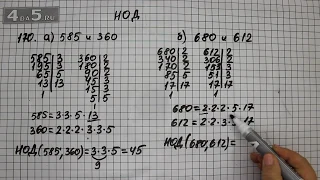 4на5.ru
НОД
170. а) 585 и 360
б) 680 и 612
585 3
195 3
65 5
13 13
1
360 2
180 2
90 2
45 3
15 3
5 5
1
680 2
340 2
170 2
85 5
17 17
1
612 2
306 2
153 3
51 3
17 17
1
585=3·3·5·13
360=2·2·2·3·3·5
НОД(585,360)=3·3·5=45
9
680=2·2·2·5·17
612=2·2·3·3·17
НОД(680,612)=